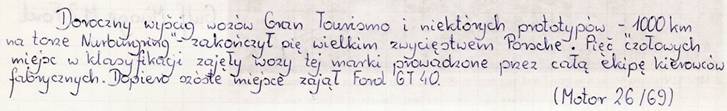 Doroczny wyścig wozów Gran Tourismo i niektórych prototypów - 1000 km
na torze Nurburgring - zakończył się wielkim zwycięstwem Porsche. Pięć czołowych
miejsc w klasyfikacji zajęły wozy tej marki prowadzone przez całą ekipę kierowców
fabrycznych. Dopiero szóste miejsce zajął Ford GT 40.
(Motor 26/69)